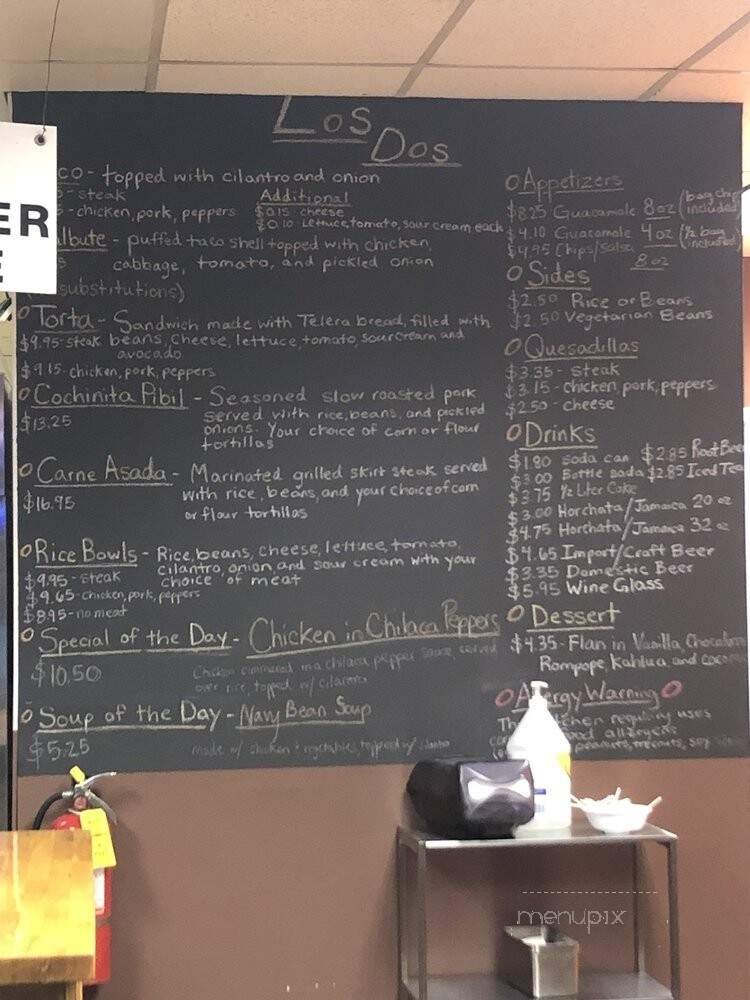 Los
Dos
co - topped with cilantro and onion
- steak
- chicken, pork, peppers
Additional
$0.15 - cheese
$0.10 - Lettuce, tomato, sour cream each
lbute - puffed taco shell topped with chicken,
cabbage, tomato, and pickled onion
substitutions)
ER
E
Torta - Sandwich made with Telera bread, filled with
$9.95 - steak beans, cheese, lettuce, tomato, sour cream and
avocado
$9.15 - chicken, pork, peppers
Cochinita Pibil - Seasoned slow roasted pork
$13.25 served with rice, beans, and pickled
onions. Your choice of corn or flour
tortillas
Carne Asada - Marinated grilled skirt steak served
$16.95 with rice, beans, and your choice of corn
or flour tortillas
Rice Bowls - Rice, beans, cheese, lettuce, tomato,
cilantro, onion and sour cream with your
$9.95 - steak choice of meat
$9.65 - chicken, pork, peppers
$8.95 - no meat
Special of the Day - Chicken in Chilaca Peppers
$10.50 Chicken simmered in a chilaca pepper sauce, served
over rice, topped w/ cilantro
Soup of the Day - Navy Bean Soup
$5.25 made w/ chicken + vegetables, topped w/
Appetizers
$8.25 Guacamole 8oz (bag chips
included
$4.10 Guacamole 4oz (1/2 bag
included)
$4.95 Chips/Salsa
8oz
Sides
$2.50 Rice or Beans
$2.50 Vegetarian Beans
Quesadillas
$3.35 - steak
$3.15 - chicken, pork, peppers
$2.50 - cheese
Drinks
$1.80 soda can $2.85 Root Beer
$3.00 Bottle soda $2.85 Iced Tea
$3.75 1/2 Liter Coke
$3.00 Horchata/Jamaica 20 oz
$4.75 Horchata/Jamaica 32 oz
$4.65 Import/Craft Beer
$3.35 Domestic Beer
$5.95 Wine Glass
Dessert
$4.35 - Flan in Vanilla, Chocolate
Rompope, Kahlua and coco
Allergy Warning
kitchen regularly uses
allergens
peanuts, treenuts, soy
menupix